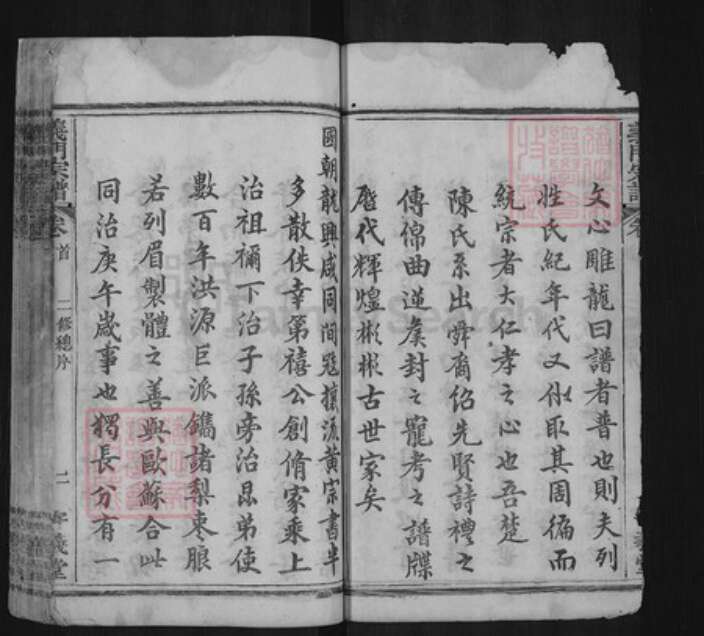 文心雕龍曰譜者普也則夫列
姓氏紀年代又付取其周徧而
統宗者大仁孝之心也吾楚
陳氏系出舜裔紹先賢詩禮之
傳綿曲逆矦封之寵考之譜牒
歷代輝煌彬彬古世家矣
國朝龍興咸同間冦擾汲黄宗書半
多散佚幸第禧公創脩家乘上
治祖禰下治子孫旁治昆弟使
數百年洪源巨派鐫諸梨棗眼
若列眉製體之善與歐蘇合此
同治庚午歲事也獨長分有一
義門宗譜 卷首 二修總序 二 孝義堂